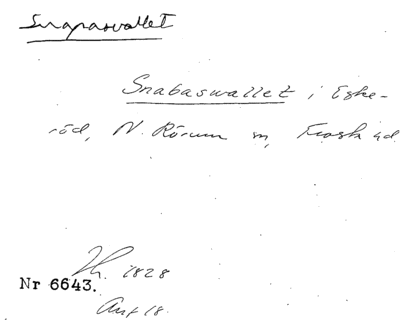 Snapasvallet
Snabaswallet i Eske-
röd, N. Rörum sn, Frosta hd
Th. 1828
Nr 6643.
18.